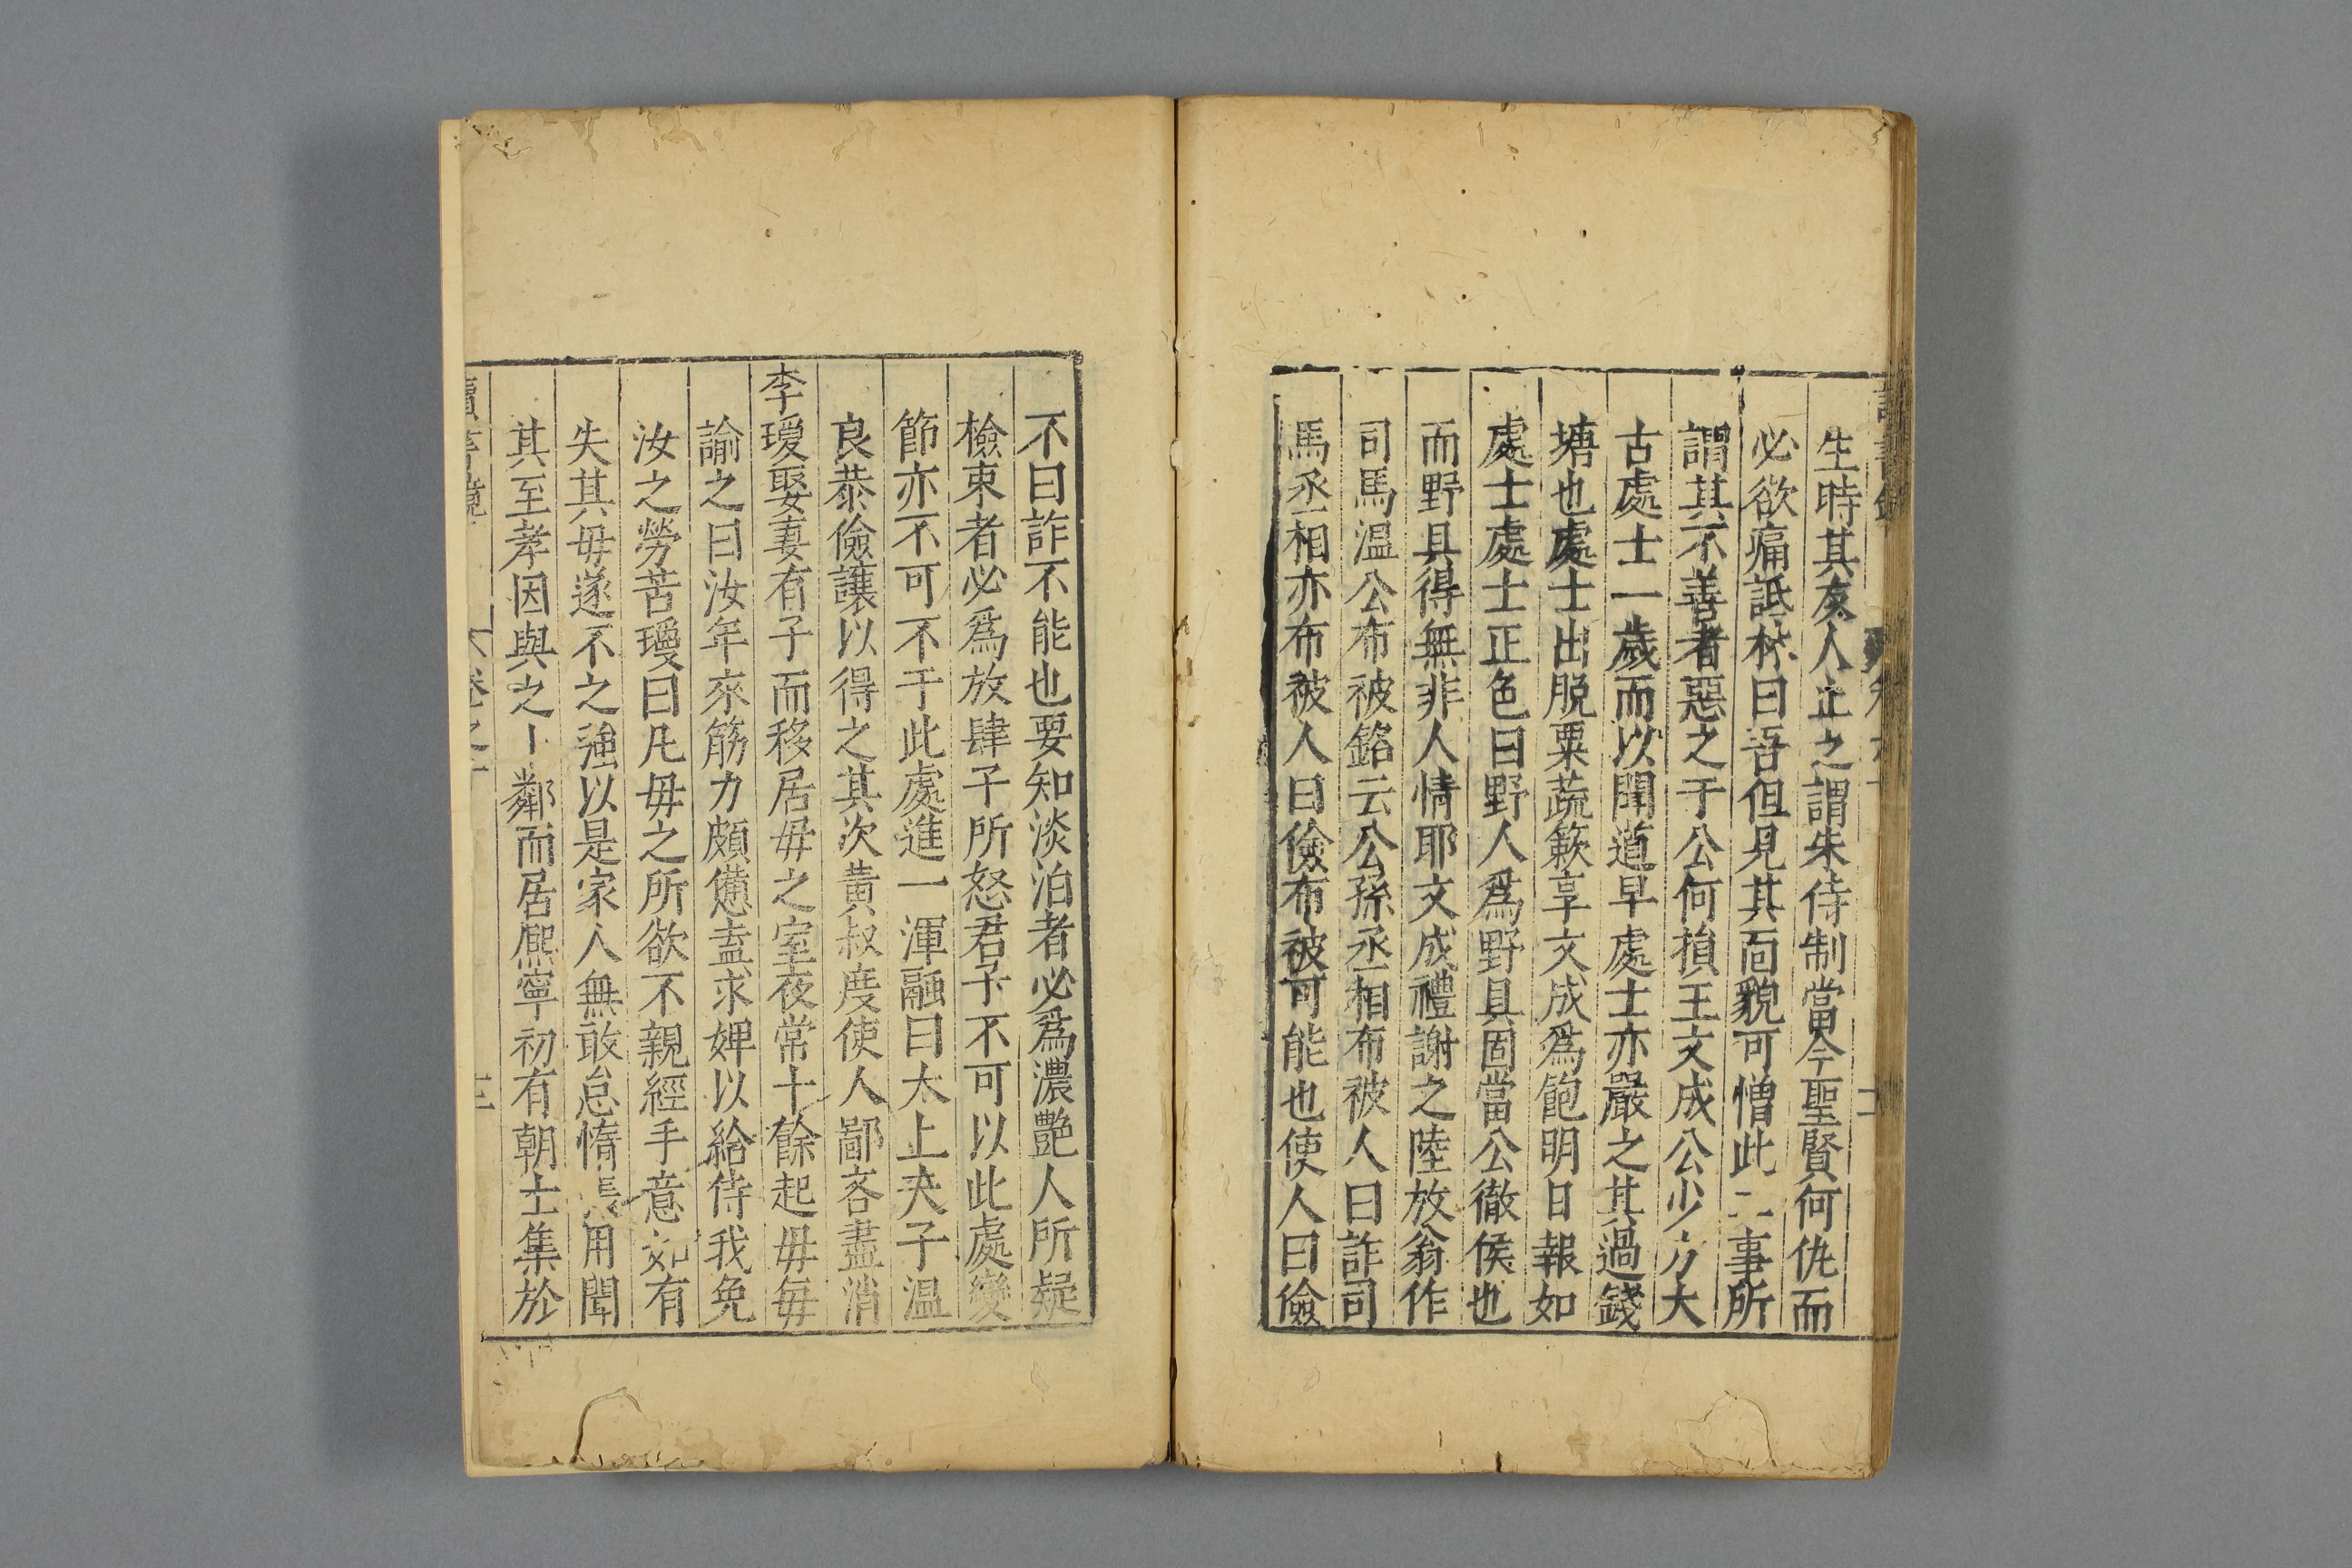 生時其友人止之謂朱侍制當今聖賢何仇而
必欲痛詆林曰吾但見其面貌可憎此二事所
謂其不善者惡之于公何損王文成公少方大
古處士一歲而以聞道早處士亦嚴之其過錢
塘也處士出脱粟蔬簌享文成爲飽明日報如
處士處士正色曰野人爲野具固當公徹侯也
而野具得無非人情耶文成禮謝之陸放翁作
司馬温公布被銘云公孫丞相布被人曰詐司
馬丞相亦布被人曰儉布被可能也使人曰儉
不曰詐不能也要知淡泊者必爲濃艷人所疑
檢束者必爲放肆子所怒君子不可以此處變
節亦不可不于此處進一渾融曰太上夫子温
良恭儉讓以得之其次黄叔度使人鄙吝盡消
李瑷娶妻有子而移居毋之室夜常十餘起毋每
諭之曰汝年來筋力頗憊盍求婢以給侍我免
汝之勞苦瓊曰凡毋之所欲不親經手意如有
失其毋遂不之強以是家人無敢怠惰用聞
其至孝因與之鄰而居熈寧初有朝士集於
卷之
十三